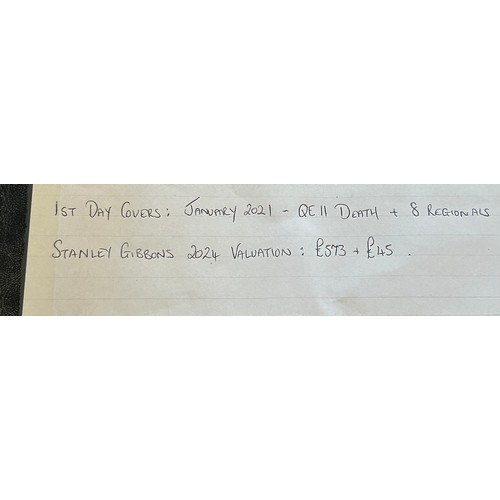 1ST DAY COVERS: JANUARY 2021 - QE II DEATH + 8 REGIONALS
STANLEY GIBBONS 2024 VALUATION: £573 + £45.